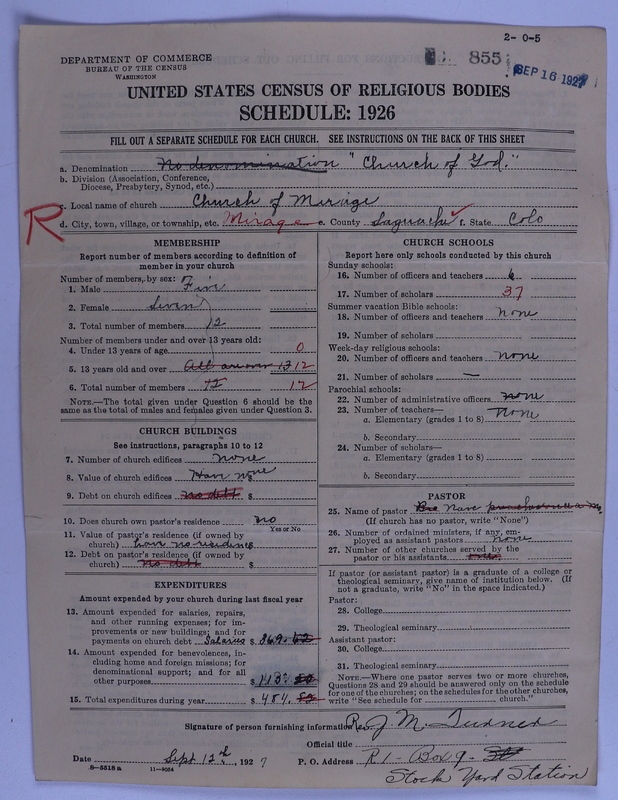 2- 0-5
DEPARTMENT OF COMMERCE
BUREAU OF THE CENSUS
WASHINGTON
855
SEP 16 1927
UNITED STATES CENSUS OF RELIGIOUS BODIES
SCHEDULE: 1926
FILL OUT A SEPARATE SCHEDULE FOR EACH CHURCH. SEE INSTRUCTIONS ON THE BACK OF THIS SHEET
a. Denomination No denomination "Church of God."
b. Division (Association, Conference,
Diocese, Presbytery, Synod, etc.)
c. Local name of church Church of Mirage
R
d. City, town, village, or township, etc. Mirage e. County Saguache f. State Colo
MEMBERSHIP
Report number of members according to definition of
member in your church
Number of members, by sex:
1. Male Five
2. Female Seven
3. Total number of members 12
Number of members under and over 13 years old:
4. Under 13 years of age 0
5. 13 years old and over All are over 13 12
6. Total number of members 12 12
NOTE.—The total given under Question 6 should be
same as the total of males and females given under Question 3.
CHURCH BUILDINGS
See instructions, paragraphs 10 to 12
7. Number of church edifices none
8. Value of church edifices Have none
9. Debt on church edifices no debt $
10. Does church own pastor's residence no
Yes or No
11. Value of pastor's residence (if owned by
church) have no residence
12. Debt on pastor's residence (if owned by
church) no debt $
EXPENDITURES
Amount expended by your church during last fiscal year
13. Amount expended for salaries, repairs,
and other running expenses; for im-
provements or new buildings; and for
payments on church debt Salaries $ 369.
14. Amount expended for benevolences, in-
cluding home and foreign missions; for
denominational support; and for all
other purposes $
15. Total expenditures during year $ 484.
CHURCH SCHOOLS
Report here only schools conducted by this church
Sunday schools:
16. Number of officers and teachers 6
17. Number of scholars 37
Summer vacation Bible schools:
18. Number of officers and teachers None
19. Number of scholars
Week-day religious schools:
20. Number of officers and teachers none
21. Number of scholars —
Parochial schools:
22. Number of administrative officers none
23. Number of teachers—
a. Elementary (grades 1 to 8) none
b. Secondary
24. Number of scholars—
a. Elementary (grades 1 to 8)
b. Secondary
PASTOR
25. Name of pastor
(If church has no pastor, write "None")
26. Number of ordained ministers, if any, em-
ployed as assistant pastors none
27. Number of other churches served by the
pastor or his assistants
If pastor (or assistant pastor) is a graduate of a college or
theological seminary, give name of institution below. (If
not a graduate, write "No" in the space indicated.)
Pastor:
28. College
29. Theological seminary
Assistant pastor:
30. College
31. Theological seminary
NOTE.—Where one pastor serves two or more churches,
Questions 28 and 29 should be answered only on the schedule
for one of the churches; on the schedules for the other churches,
write "See schedule for church."
Signature of person furnishing information Rev J. M. Turner
Official title
Date Sept 12th, 1927 P. O. Address R 1 - Box 9 -
8—5518a 11—9034
Stock Yard Station